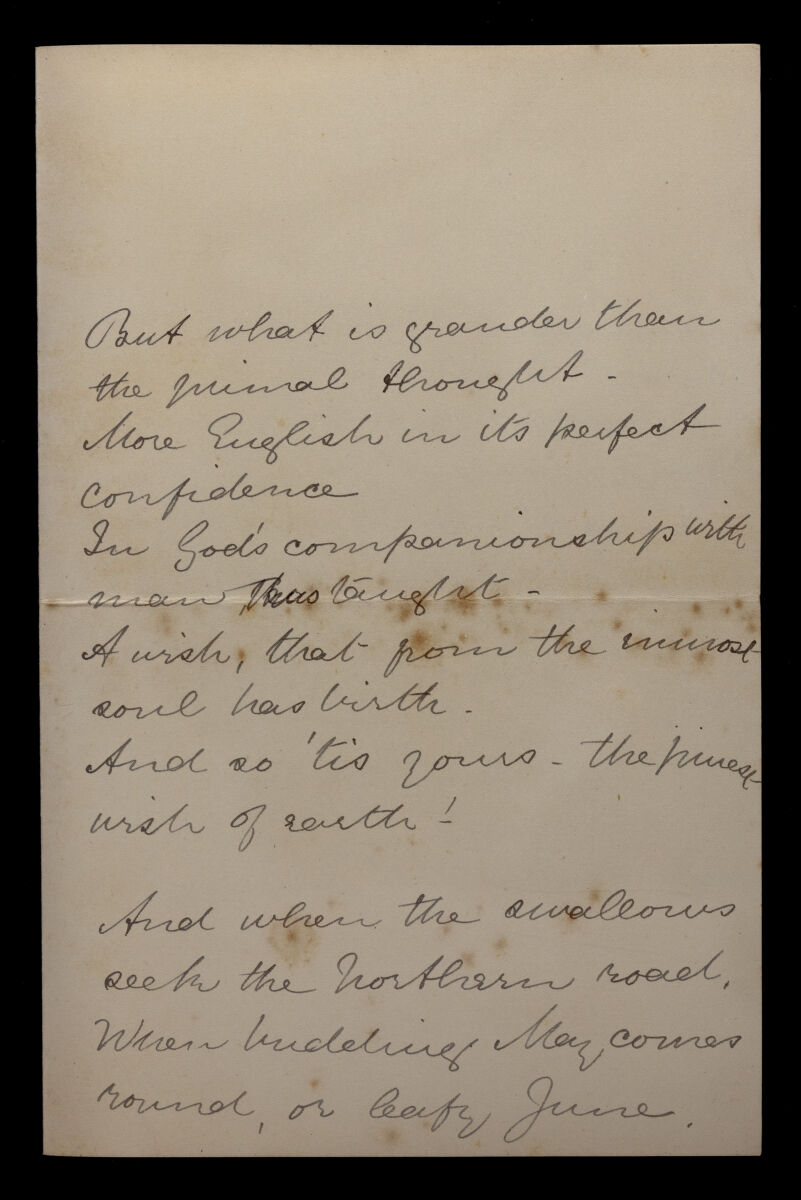 But what is grander than
the primal thought -
More English in its perfect
confidence
In God's companionship with
man thus taught -
A wish, that from the inmost
soul has birth -
And so 'tis yours - the purest
wish of earth!
And when the swallows
seek the Northern road,
When budding May comes
round, or leafy June.